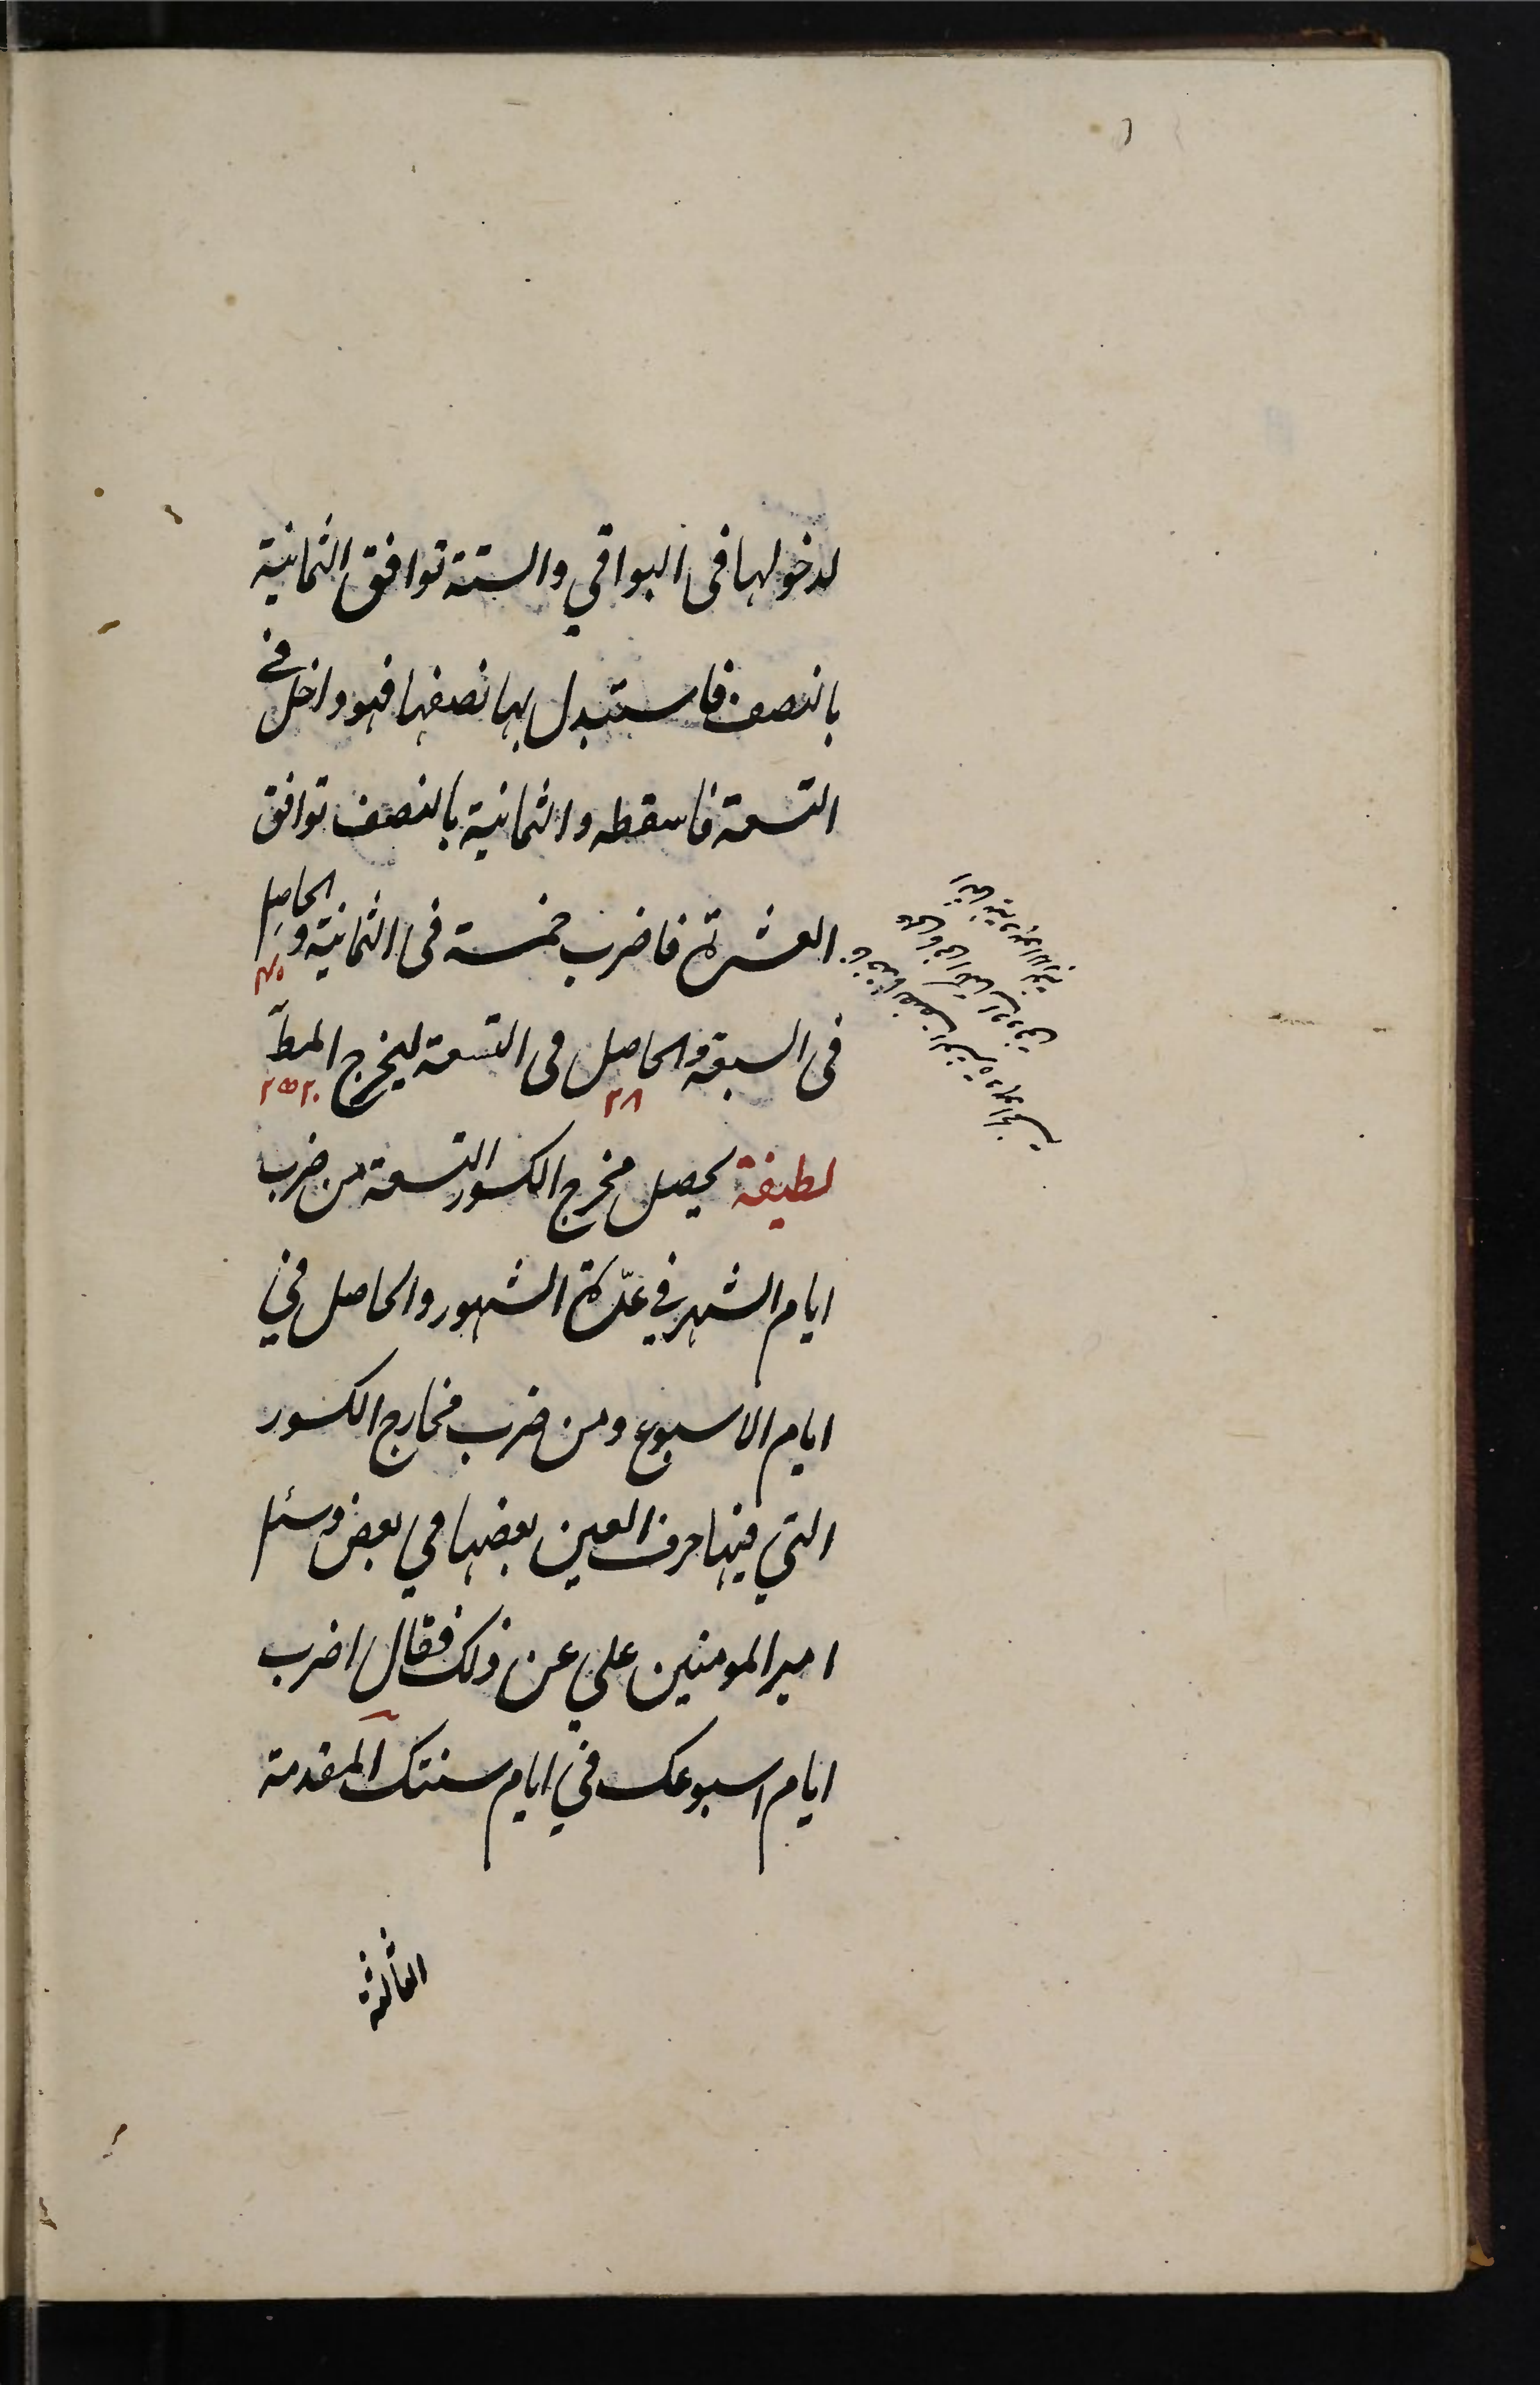 لدخولها فى البواقي والستة توافق الثمانية
بالنصف فاستبدل بها نصفها فهو داخل في
التسعة فاسقطه والثمانية بالنصف توافق
العشرة فاضرب خمسة فى الثمانية والحاصل
۴۰
فى السبعة والحاصل فى التسعة ليخرج المط
۲۸
۲۵۲۰
لطيفة يحصل مخرج الكسور التسعة من ضرب
ايام الشهر في عدّة الشهور والحاصل في
ايام الاسبوع ومن ضرب مخارج الكسور
التي فيها حرف العين بعضها في بعض وسئل
امير المومنين علي عن ذلك فقال اضرب
ايام اسبوعك في ايام سنتك المقدمة
الثالثة